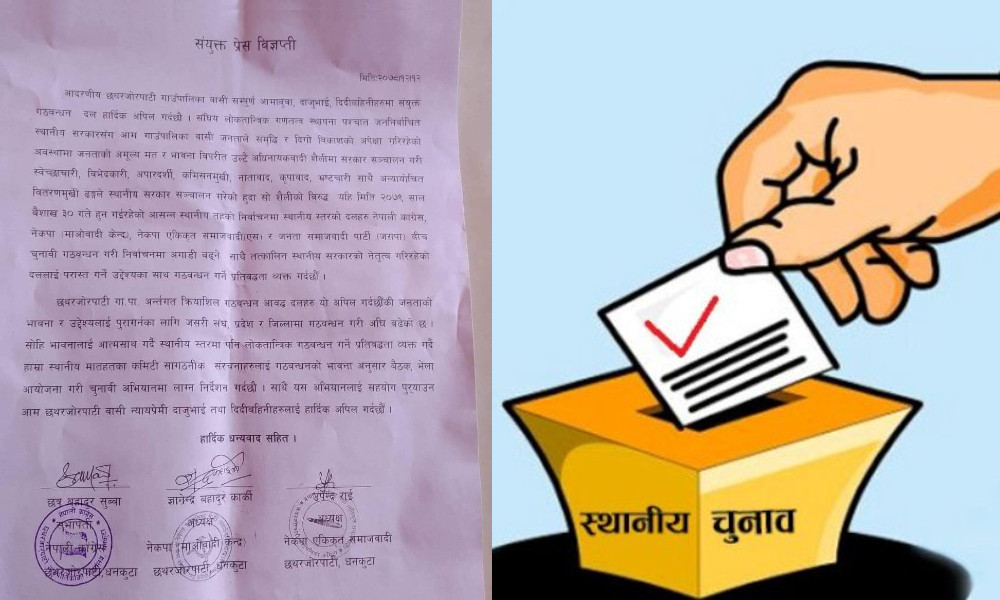 संयुक्त प्रेस विज्ञप्ती
मिति:२०७८/१२/१२
आदरणीय छथरजोरपाटी गाउंपालिका वासी सम्पुर्ण आमाबुवा, दाजुभाई, दिदीबहिनीहरुमा संयुक्त
गठवन्धन दल हार्दिक अपिल गर्दछौ । संघिय लोकतान्त्रिक गणतन्त्र स्थापना पश्चात जननिर्वाचित
स्थानीय सरकारसंग आम गाउंपालिका वासी जनताले समृद्धि र दिगो विकाशको अपेक्षा गरिरहेको
अवस्थामा जनताको अमूल्य मत र भावना विपरीत उल्टै अधिनायकवादी शैलीमा सरकार सञ्चालन गरी
स्वेच्छाचारी, विभेदकारी, अपारदर्शी, कमिसनमुखी, नातावाद, कृपावाद, भ्रष्टचारी साथै अन्यायोचित
वितरणमुखी ढङ्गले स्थानीय सरकार सञ्चालन गरेको हुदा सो शैलीको विरुद्ध यहि मिति २०७९ साल
बैशाख ३० गते हुन गईरहेको आसन्न स्थानीय तहको निर्वाचनमा स्थानीय स्तरको दलहरु नेपाली काग्रेस,
नेकपा (माओवादी केन्द्र), नेकपा एकिकृत समाजवादी(एस) र जनता समाजवादी पार्टी (जसपा) बीच
चुनावी गठवन्धन गरी निर्वाचनमा अगाडी बढ्ने साथै तत्कालिन स्थानीय सरकारको नेतृत्व गरिरहेको
दललाई परास्त गर्ने उद्देश्यका साथ गठवन्धन गर्ने प्रतिबद्धता व्यक्त गर्दछौं ।
छथरजोरपाटी गा.पा. अर्न्तगत क्रियाशिल गठवन्धन आवद्ध दलहरु यो अपिल गर्दछौंकी जनताको
भावना र उद्देश्यलाई पुरागर्नका लागि जसरी संघ, प्रदेश र जिल्लामा गठवन्धन गरी अघि बढेको छ ।
सोहि भावनालाई आत्मसाथ गर्दै स्थानीय स्तरमा पनि लोकतान्त्रिक गठवन्धन गर्ने प्रतिबद्धता व्यक्त गर्दै
हाम्रा स्थानीय मातहतका कमिटी सांगठनीक संरचनाहरुलाई गठवन्धनको भावना अनुसार बैठक, भेला
आयोजना गरी चुनावी अभियानमा लाग्न निर्देशन गर्दछौ । साथै यस अभियानलाई सहयोग पुर्‍याउन
आम छथरजोरपाटी वासी न्यायप्रेमी दाजुभाई तथा दिदीबहिनीहरुलाई हार्दिक अपिल गर्दछौं ।
हार्दिक धन्यवाद सहित ।
छत्र बहादुर सुब्बा ज्ञानेन्द्र बहादुर कार्की भुपेन्द्र राई
सभापती अध्यक्ष अध्यक्ष
नेपाली काग्रेस नेकपा (माओवादी केन्द्र) नेकपा एकिकृत समाजवादी
छथरजोरपाटी,धनकुटा छथरजोरपाटी, धनकुटा छथरजोरपाटी, धनकुटा
स्थानीय चुनाव